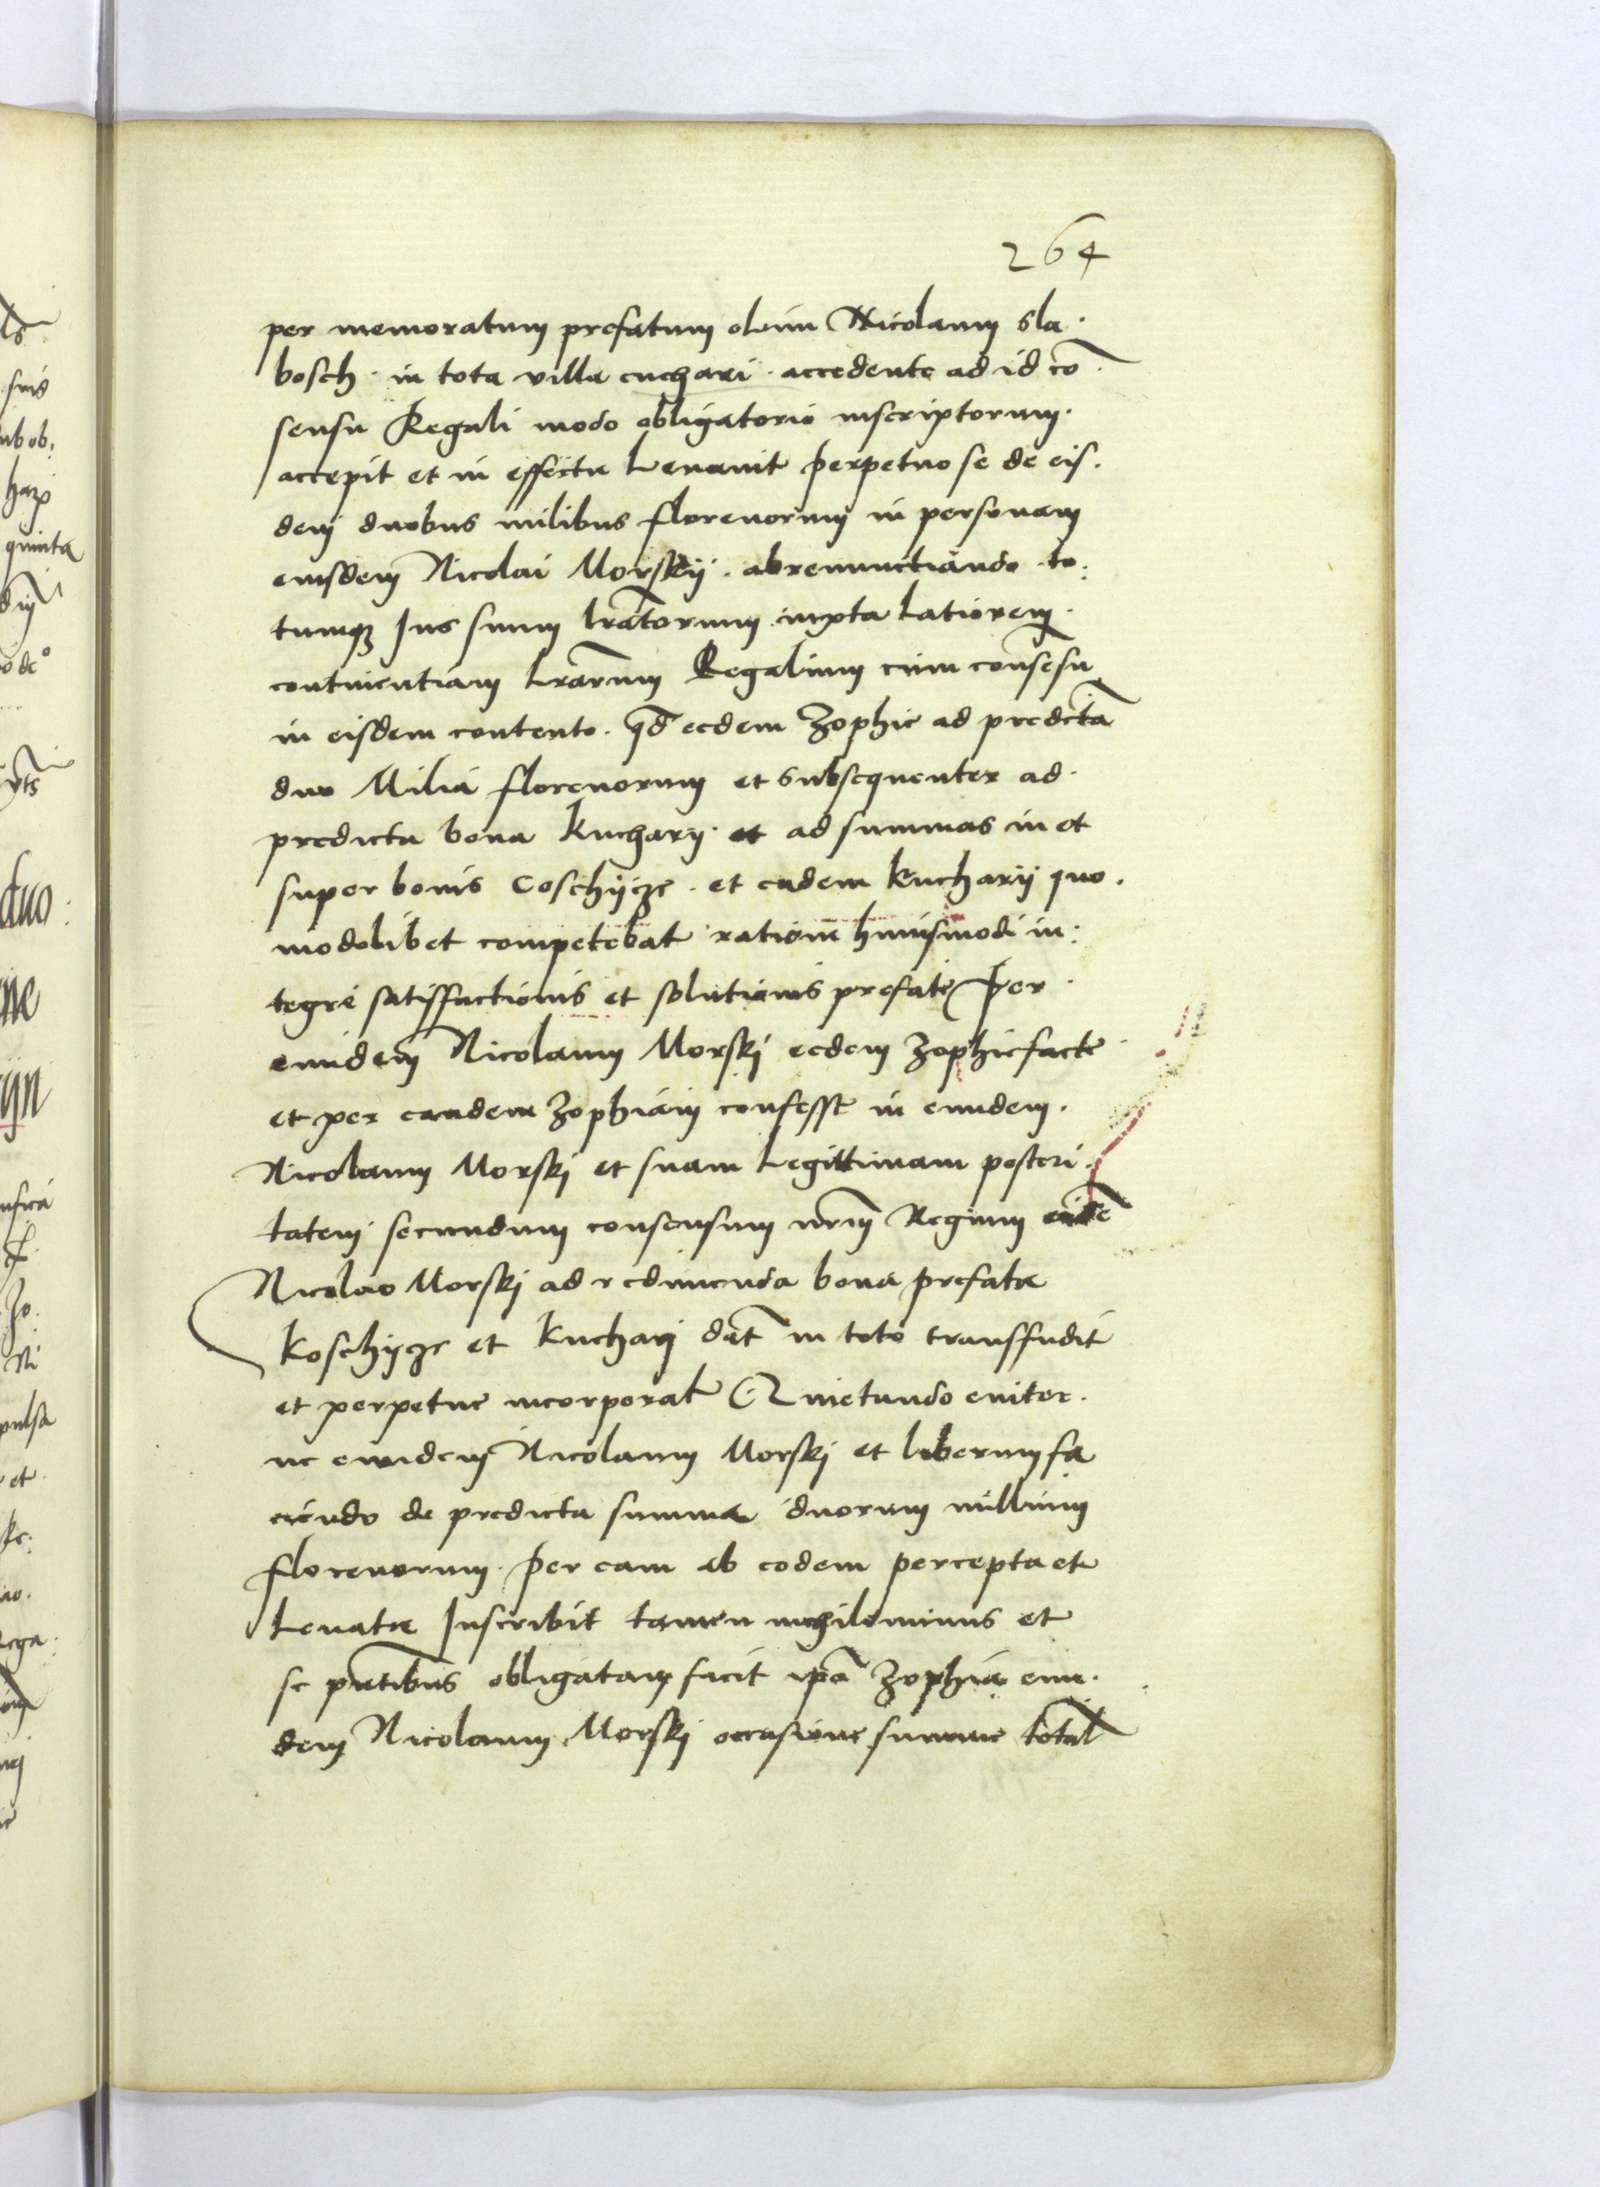 264
per memoratum prefatum olim Nicolaum Sla·
bosch · in tota villa cuchari · accedente ad id cō·
sensu Regali modo obligatorio inscriptorum·
accepit et in effectu Levavit perpetuo se de eis·
dem duobus milibus florenorum in personam
eiusdem Nicolai Morskij · abrenunctiando to:
tumqȝ Ius suum lrātorium iuxta Latiorem·
continentiam Lrārum Regalium cum consēsu
in eisdem contento · qd̄ eedem Zophie ad predictā
duo Milia florenorum et subsequenter ad·
predicta bona Kuchary · et ad summas in et
super bonis Coschijcze · et eadem Kucharij quo·
modolibet competebat rationē huiusmodi in:
tegre satisffactionis et solutionis prefate per·
eundem Nicolaum Morskj eedem Zophie facte·
et per eandem Zophiam confesse in eundem·
Nicolaum Morskj et suam Legittimam posteri·
tatem secundum consensum nrm̄ Regium eidē
Nicolao Morskj ad redimenda bona prefata
Koschijcze et Kucharj dat̄ in toto transffudit
et perpetue incorporat̄ Quietando eviter·
ne eundem Nicolaum Morskj et liberum fa
ciendo de predicta summa duorum millium
florenorum · per eam ab eodem percepta et
Levata Inscribit tamen nichilominus et
se pn̄tibus obligatam facit ipā Zophia eun·
dem Nicolaum Morskj occasione summe total̄